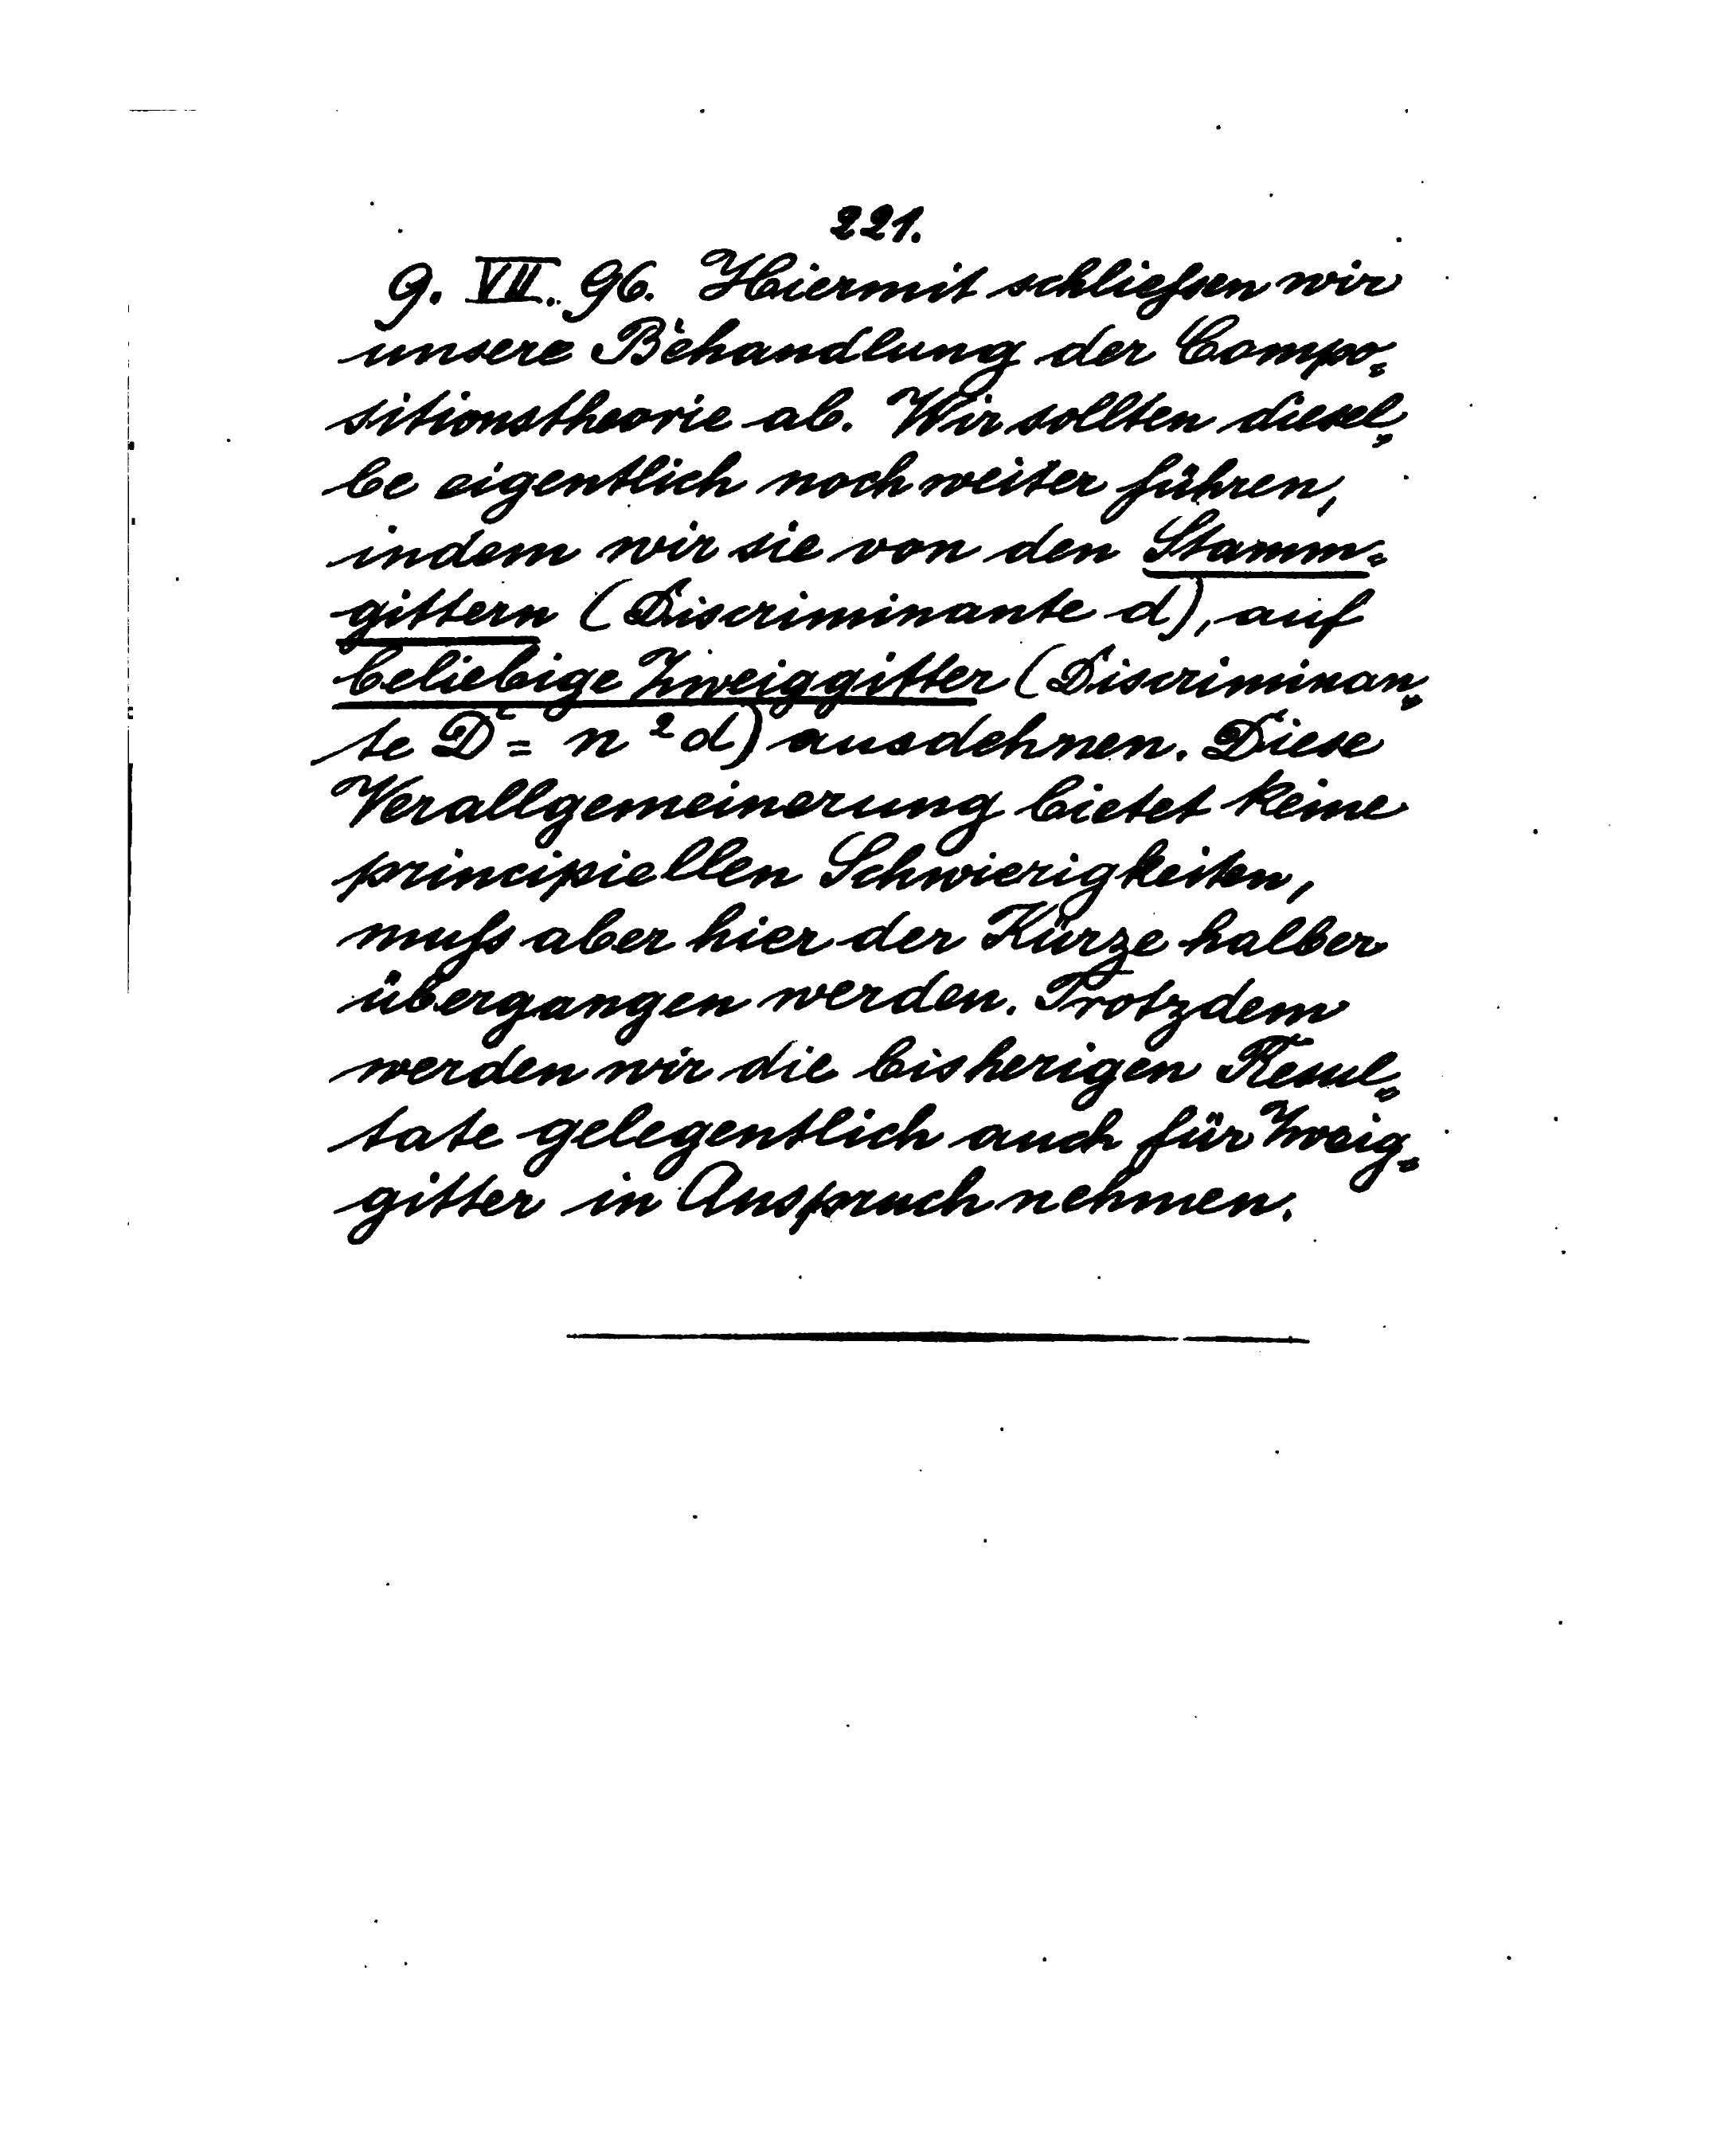 221.
9. VII. 96. Hiermit schliessen wir
unsere Behandlung der Compo=
sitionstheorie ab. Wir sollten diesel=
be eigentlich noch weiter führen,
indem wir sie von den Stamm=
gittern (Discriminante d), auf
beliebige Zweiggitter (Discriminan=
te D = n²d) ausdehnen. Diese
Verallgemeinerung bietet keine
principiellen Schwierigkeiten,
muss aber hier der Kürze halber
übergangen werden. Trotzdem
werden wir die bisherigen Resul=
tate gelegentlich auch für Zweig=
gitter in Anspruch nehmen.